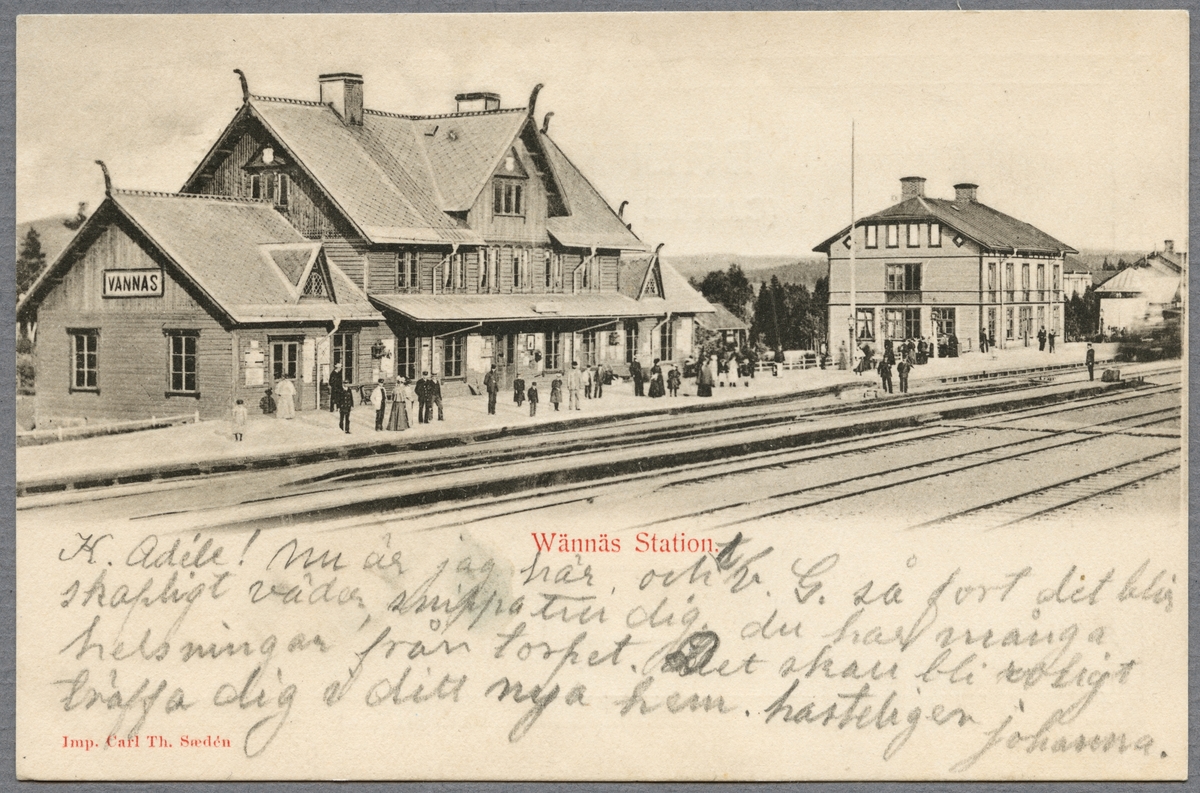 VANNAS
Wännäs Station.
K. Adéle! Nu är jag här och t. V. G. så fort det blir
skapligt väder, snippa till dig. du har många
helsningar från torpet. Det skall bli roligt
träffa dig i ditt nya hem. hasteligen
johanna.
Imp. Carl Th. Sædén